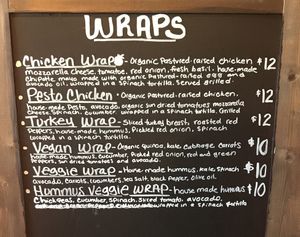 WRAPS
Chicken Wrap - Organic Pastured-raised chicken $12
mozzarella cheese, tomato, red onion, fresh basil. house-made
chipotle mayo made with organic pastured-raised egg and
avocado oil, wrapped in a spinach tortilla. Served grilled.
Pesto Chicken - Organic Pastured-raised chicken, $12
house-made pesto, avocado, organic sun dried tomatoes mozzarella
cheese, spinach, cucumber wrapped in a spinach tortilla. Grilled
Turkey Wrap - Sliced turkey breast, roasted red $12
Peppers, house-made hummus, Pickled red onion, spinach
wrapped in a spinach tortilla.
Vegan Wrap - Organic quinoa, kale cabbage, carrots $10
house-made hummus, cucumber, Pickled red onion, red and green
Peppers, sun dried tomatoes and avocado.
Veggie Wrap - House-made hummus, kale, spinach $10
Avocado, carrots, cucumbers, sea salt, black pepper, olive oil
Hummus Veggie WRAP - house made hummus $10
Chickpeas, cucumber, spinach, sliced tomato, avocado,
wrapped in a spinach tortilla